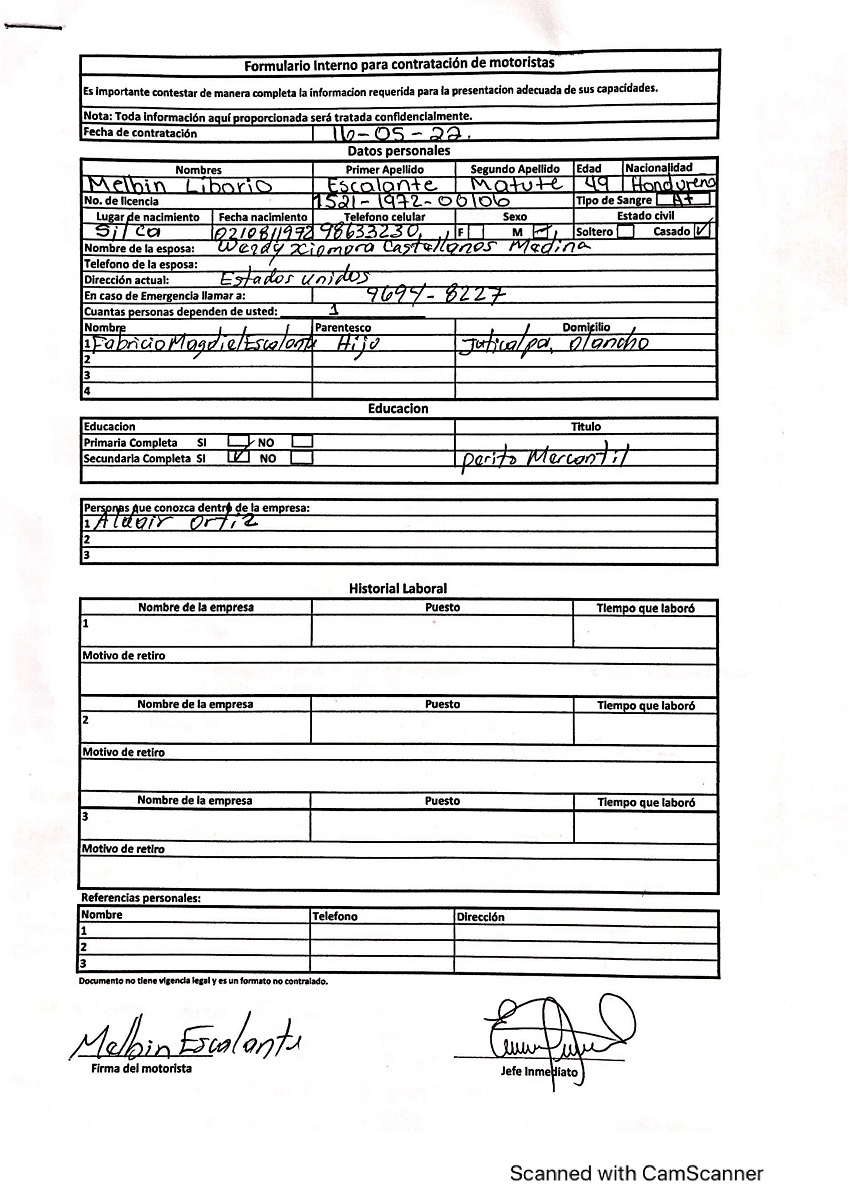 Formulario Interno para contratación de motoristas
Es importante contestar de manera completa la informacion requerida para la presentacion adecuada de sus capacidades.
Nota: Toda información aquí proporcionada será tratada confidencialmente.
Fecha de contratación 16-05-22.
Datos personales
Nombres Primer Apellido Segundo Apellido Edad Nacionalidad
Melbin Liborio Escalante Matute 49 Hondureno
No. de licencia 1521-1972-00106 Tipo de Sangre A+
Lugar de nacimiento Fecha nacimiento Telefono celular Sexo Estado civil
Silca 0210811972 98633230, F M Soltero Casado ✓
Nombre de la esposa: Wendy Xiomora Castellanos Medina
Telefono de la esposa:
Dirección actual: Estados unidos
En caso de Emergencia llamar a: 9694-8227
Cuantas personas dependen de usted: 1
Nombre Parentesco Domicilio
1 Fabricio Magdiel Escalante Hijo Juticalpa, Olancho
2
3
4
Educacion
Educacion Titulo
Primaria Completa SI NO
Secundaria Completa SI ✓ NO perito Mercantil
Personas que conozca dentro de la empresa:
1 Aldair Ortiz
2
3
Historial Laboral
Nombre de la empresa Puesto Tiempo que laboró
1
Motivo de retiro
Nombre de la empresa Puesto Tiempo que laboró
2
Motivo de retiro
Nombre de la empresa Puesto Tiempo que laboró
3
Motivo de retiro
Referencias personales:
Nombre Telefono Dirección
1
2
3
Documento no tiene vigencia legal y es un formato no contralado.
Melbin Escalante
Firma del motorista Jefe Inmediato
Scanned with CamScanner